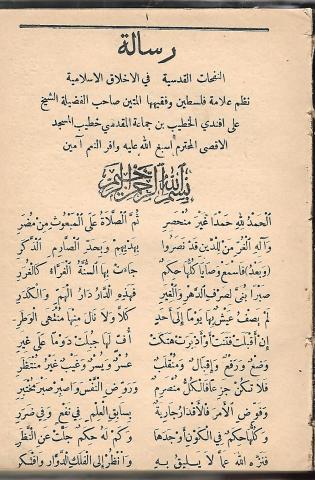 ١
رسالة
النفحات القدسية في الاخلاق الاسلامية
نظم علامة فلسطين وفقيهها المتين صاحب الفضيلة الشيخ
على افندي الخطيب بن جماعة المقدسي خطيب المسجد
الاقصى المحترم اسبغ الله عليه وافر النعم آمين
بسم الله الرحمن الرحيم
الحمدُ للهِ حمدًا غَيرَ منحصر ثُمَّ الصَّلَاةُ عَلَى المَبعُوثِ مِنْ مُضَر
وآلهِ الغُرّ مِن لِلدِين قَدْ نَصَرُوا بِهَديِهِم وَبِحَدِ الصارِمِ الذَّكر
(وَبَعدُ) فاسمع وصَايَا كلُّها حِكَم جاءت بها السُّنَّةُ الغَرَّاء كالغُرَر
صبرًا بُنَيَّ لصَرفِ الدَّهرِ والغِيَر فهَذِهِ الدَّارُ دارُ الهمِّ والكَدَر
لم يَصفُ عيشٌ بها يومًا إلى أحدٍ كَلَّا وَلا نالَ مِنها مُنتَهَى الوطر
إن أقبلت فتنت أو أدبرت هتكت أُفٍّ لها جُبلت دَومًا على غِيَر
وضعٌ ورفعٌ وإقبالٌ ومنقلبٌ عُسرٌ ويُسرٌ وغيبٌ غيرُ منتظر
فلا تكن جزعًا فالكلُّ منصرمٌ وروّض النَّفسَ واصبر صبرَ مختبر
وفوّض الأمرَ فالأقدارُ جاريةٌ بسابقِ العلمِ في نفعٍ وفي ضرر
وكلُّها حكمٌ في الكونِ أوجدَها وكم لهُ حِكمٌ جلَّت عن النَّظر
فنزّه اللهَ عمَّا لا يليقُ بهِ وانظُر إلى الفلكِ الدَّوّارِ وافتكر